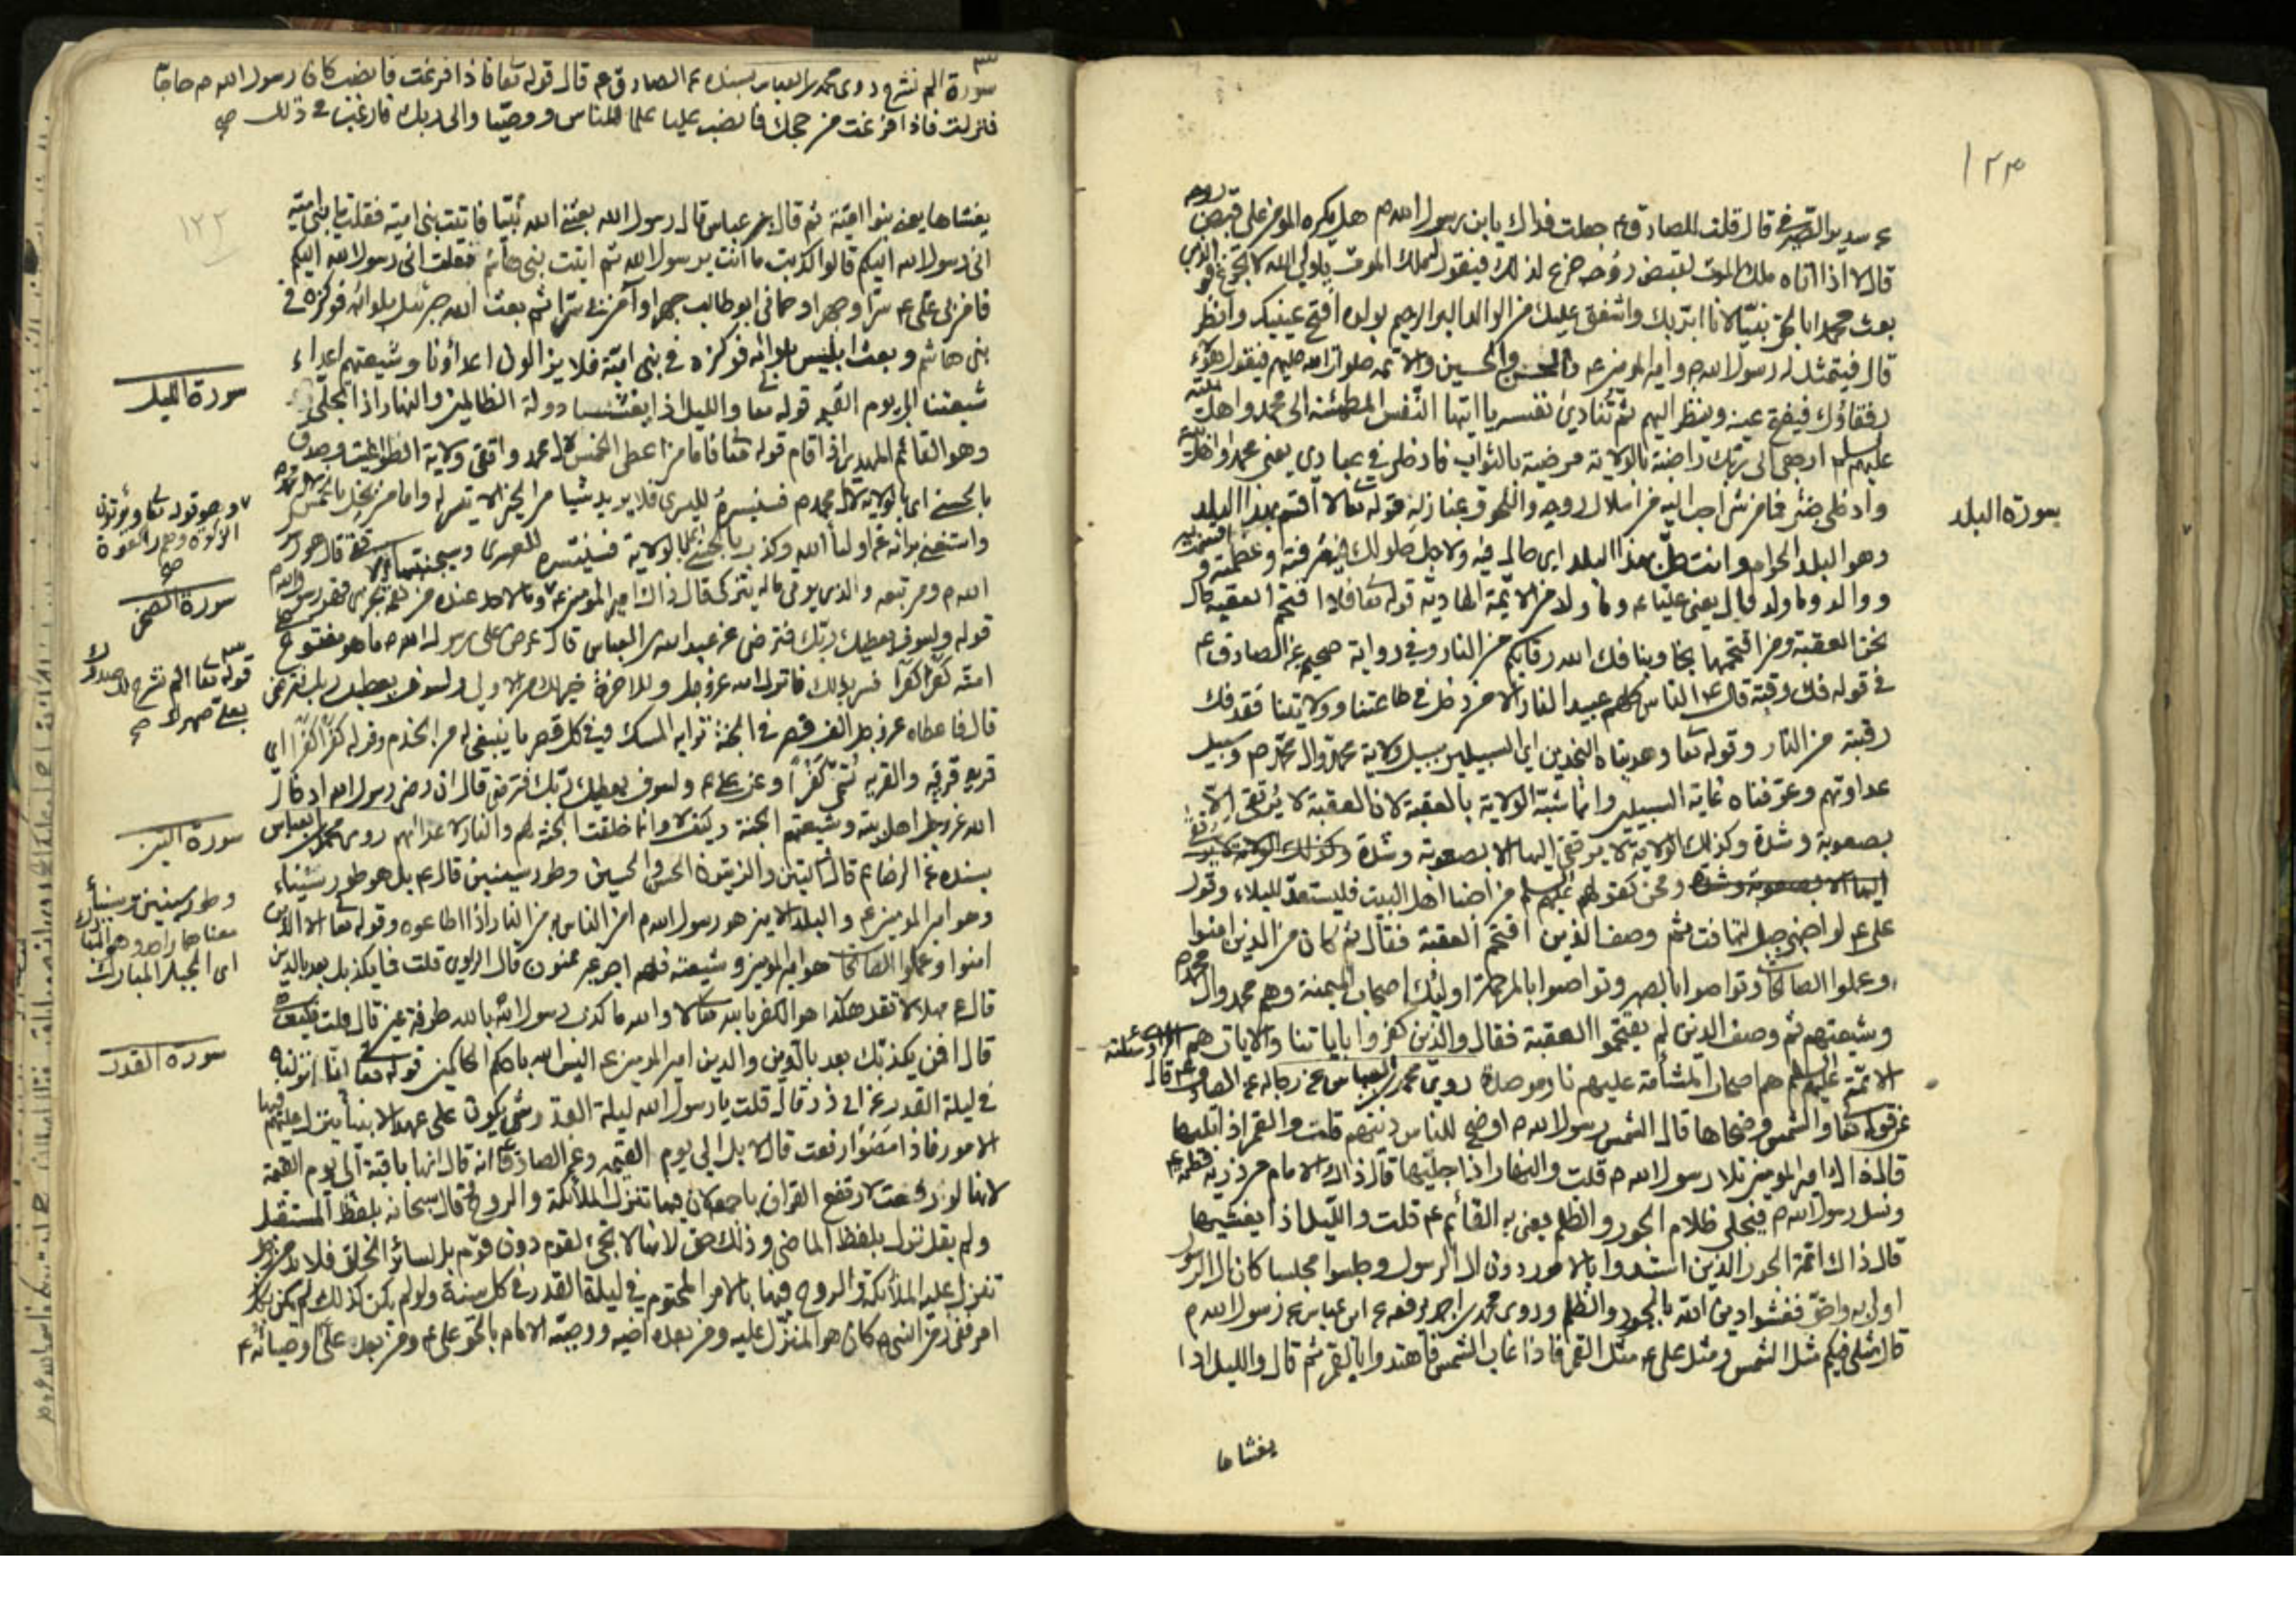 ١٢٣
عن سدير الصيرفي قال قلت للصادق ع جعلت فداك يابن رسول الله م هل يكره المؤمن على قبض روحه
قال لا اذا اتاه ملك الموت لقبض روحه جزع لذلك فيقول له ملك الموت يا ولي الله لا تجزع فو الذي
بعث محمدا بالحق نبيا لانا ابر بك واشفق عليك من الوالد البر الرحيم بولده افتح عينيك وانظر
قال فيتمثل له رسول الله م وامير المؤمنين ع والحسن والحسين والائمه صلوات الله عليهم فيقول هؤلاء
رفقاؤك فيفتح عينه وينظر اليهم ثم تنادى نفسه يا ايتها النفس المطمئنه الى محمد واهل بيته
عليهم السلم ارجعي الى ربك راضية بالولاية مرضية بالثواب فادخلي في عبادي يعني محمد واهل بيته
وادخلي جنتي فما من شئ احب اليه من انسلال روحه واللحوق بمنازله قوله تعالى لا اقسم بهذا البلد
سورة البلد
وهو البلد الحرام وانت حل بهذا البلد اي
ووالد وما ولد قال يعني عليا ع وما ولد من الائمة الهادية قوله تعا فلا اقتحم العقبة قال
نحن العقبة ومن اقتحمها نجا وبنا فك الله رقابكم من النار وفي رواية صحيحه عن الصادق ع
في قوله فك رقبة قال ع الناس كلهم عبيد النار الا من دخل في طاعتنا وولايتنا فقد فك
رقبته من النار وقوله تعا وهديناه النجدين اي السبيلين سبيل ولاية محمد وال محمد م وسبيل
عداوتهم وعرفناه غاية السبيلين وانما شبه الولاية بالعقبة لان العقبة لا يرتقى الا
بصعوبة وشدة وكذلك الولاية لا يرتقى اليها الا بصعوبة وشدة وكذلك الولاية لا يرتقى
اليها الا بصعوبة وشدة ونحن كقولهم عليهم السلم من احبنا اهل البيت فليستعد للبلاء وقول
على ع لو احبني جبل لتهافت ثم وصف الذين اقتحم العقبة فقال ثم كان من الذين امنوا
وعملوا الصالحات وتواصوا بالصبر وتواصوا بالمرحمة اولئك اصحاب الميمنة وهم محمد وال محمد م
وشيعتهم ثم وصف الذين لم يقتحموا العقبة فقال والذين كفروا باياتنا والايات هم
الائمة عليهم السلم هم اصحاب المشأمة عليهم نار موصدة روى محمد بن العباس عن رجاله عن الصادق ع قال
عن قوله تعا والشمس وضحاها قال الشمس رسول الله م اوضح للناس دينهم قلت والقمر اذا تليها
قال ذاك امير المؤمنين تلا رسول الله م قلت والنهار اذا جليها قال ذاك الامام من ذرية فاطمه ع
ونسل رسول الله م فيجلي ظلام الجور والظلم يعني به القائم ع قلت والليل اذا يغشيها
قال ذاك ائمة الجور الذين استبدوا بالامور دون ال الرسول وجلسوا مجلسا كان ال الرسول
اولى به واحق فغشوا دين الله بالجور والظلم وروى محمد بن احمد يرفعه عن ابن عباس عن رسول الله م
قال مثلي فيكم مثل الشمس ومثل على ع مثل القمر فاذا غاب الشمس فاهتدوا بالقمر ثم قال والليل اذا
يغشاها
سورة الم نشرح روى محمد بن العباس بسنده عن الصادق ع قال قوله تعا فاذا فرغت فانصب كان رسول الله م حاجا
فنزلت فاذا فرغت من حجك فانصب عليا علما للناس ووصيا والى ربك فارغب في ذلك صح
١٢٢
يغشاها يعني بنوا امية ثم قال ابن عباس قال رسول الله بعثني الله نبيا فاتيت بني امية فقلت يا بني امية
اني رسول الله اليكم قالوا كذبت ما انت برسول الله ثم اتيت بني هاشم فقلت اني رسول الله اليكم
فامن بي علي ع سرا وجهرا وحماني ابو طالب جهرا وآمن بي سرا ثم بعث الله جبرئيل بلوائه فركزه في
بني هاشم وبعث ابليس بلوائه فركزه في بني امية فلا يزالون اعداؤنا وشيعتهم اعداء
سورة الليل
شيعتنا الى يوم القيمه قوله تعا والليل اذا يغشى دولة الظالمين والنهار اذا تجلى
وهو القائم المهدي اذا قام قوله تعا فاما من اعطى الخمس لال محمد واتقى ولاية الطواغيت وصدق
بالحسنى اي بالولاية لال محمد م فسنيسره لليسرى فلا يريد شيئا من الخير الا تيسر له واما من بخل بالخمس
واستغنى برائه عن اولياء الله وكذب بالحسنى بالولاية فسنيسره للعسرى وسيجنبها الاتقى قال هو رسول
الله م ومن تبعه والذي يؤتي ماله يتزكى قال ذاك امير المؤمنين ع وما لاحد عنده من نعمة تجزى فهو رسول الله م
وهو قوله تعا ويؤتون
الزكوة وهم راكعون
صح
سورة الضحى
قوله ولسوف يعطيك ربك فترضى عن عبد الله بن العباس قال عرض على رسول الله م ما هو مفتوح
قوله تعا الم نشرح لك صدرك
بعلى صهرك صح
امته كفرا كفرا فسر بذلك فانزل الله عز وجل وللاخرة خير لك من الاولى ولسوف يعطيك ربك فترضى
قال فاعطاه عز وجل الف قصر في الجنة ترابه المسك وفي كل قصر ما ينبغي له من الخدم وقوله كفرا كفرا اي
قرية قرية والقرية تسمى كفرا وعن ع ولسوف يعطيك ربك فترضى قال ان رضى رسول الله ادخال
الله عز وجل اهل بيته وشيعتهم الجنة وكيف لا وانما خلقت الجنة لهم والنار لاعدائهم روى محمد بن العباس
سورة التين
بسنده عن الرضا ع قال التين والزيتون الحسن والحسين وطور سينين قال ع بل هو طور سيناء
وطور سينين وسيناء
اي الجبل المبارك
وهو امير المؤمنين ع والبلد الامين هو رسول الله م امن الناس به من النار اذا اطاعوه وقوله تعا الا الذين
امنوا وعملوا الصالحات هو امير المؤمنين وشيعته فلهم اجر غير ممنون قال الراوي قلت فما يكذبك بعد بالدين
قال ع مهلا لا تقل هكذا هو الكفر بالله لا والله ما كذب رسول الله بالله طرفة عين قال قلت فكيف
قال فمن يكذبك بعد بالدين والدين امير المؤمنين ع اليس الله باحكم الحاكمين قوله تعا انا انزلناه
سورة القدر
في ليلة القدر عن ابي ذر قال قلت يا رسول الله ليلة القدر شئ يكون على عهد الانبياء ينزل عليهم فيها
الامور فاذا امضوا رفعت قال لا بل الى يوم القيمه وعن الصادق ع انه قال انها باقية الى يوم القيمة
لانها لو رفعت لارتفع القران باجمعه لان فيها تنزل الملائكة والروح قال سبحانه بلفظ المستقبل
ولم يقل نزل بلفظ الماضي وذلك حق لانها لا تجئ لقوم دون قوم بل لسائر الخلق فلا بد من رجل
تنزل عليه الملائكة والروح فيها بالامر المحتوم في ليلة القدر في كل سنة ولو لم يكن كذلك لم يكن
كان هو المنزل عليه ومن بعده اخيه ووصيه الامام بالحق علي ع ومن بعد علي اوصيائه ع